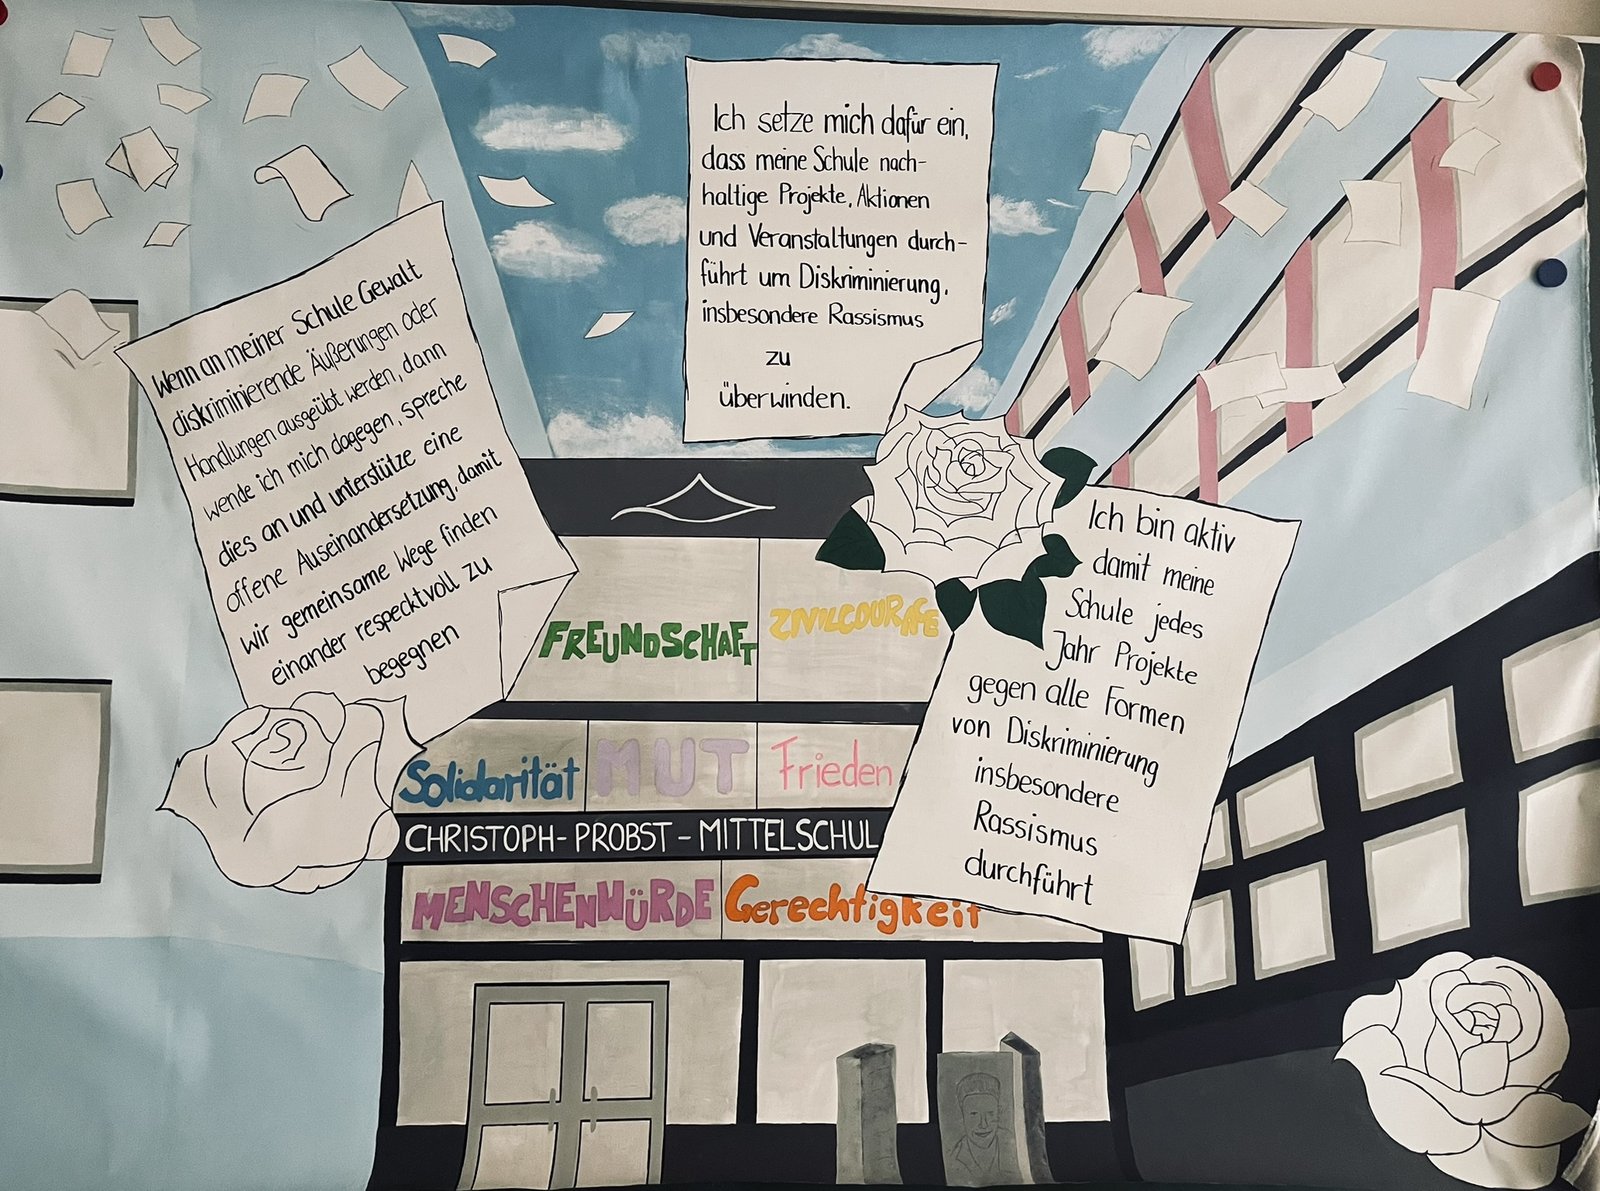 Ich setze mich dafür ein,
dass meine Schule nach-
haltige Projekte, Aktionen
und Veranstaltungen durch-
führt um Diskriminierung,
insbesondere Rassismus
zu
überwinden.
Wenn an meiner Schule Gewalt
diskriminierende Äußerungen oder
Handlungen ausgeübt werden, dann
wende ich mich dagegen, spreche
dies an und unterstütze eine
offene Auseinandersetzung, damit
wir gemeinsame Wege finden
einander respecktvoll zu
begegnen
Ich bin aktiv
damit meine
Schule jedes
Jahr Projekte
gegen alle Formen
von Diskriminierung
insbesondere
Rassismus
durchführt
FREUNDSCHAFT ZIVILCOURAGE
Solidarität MUT Frieden
CHRISTOPH-PROBST-MITTELSCHUL
MENSCHENWÜRDE Gerechtigkeit